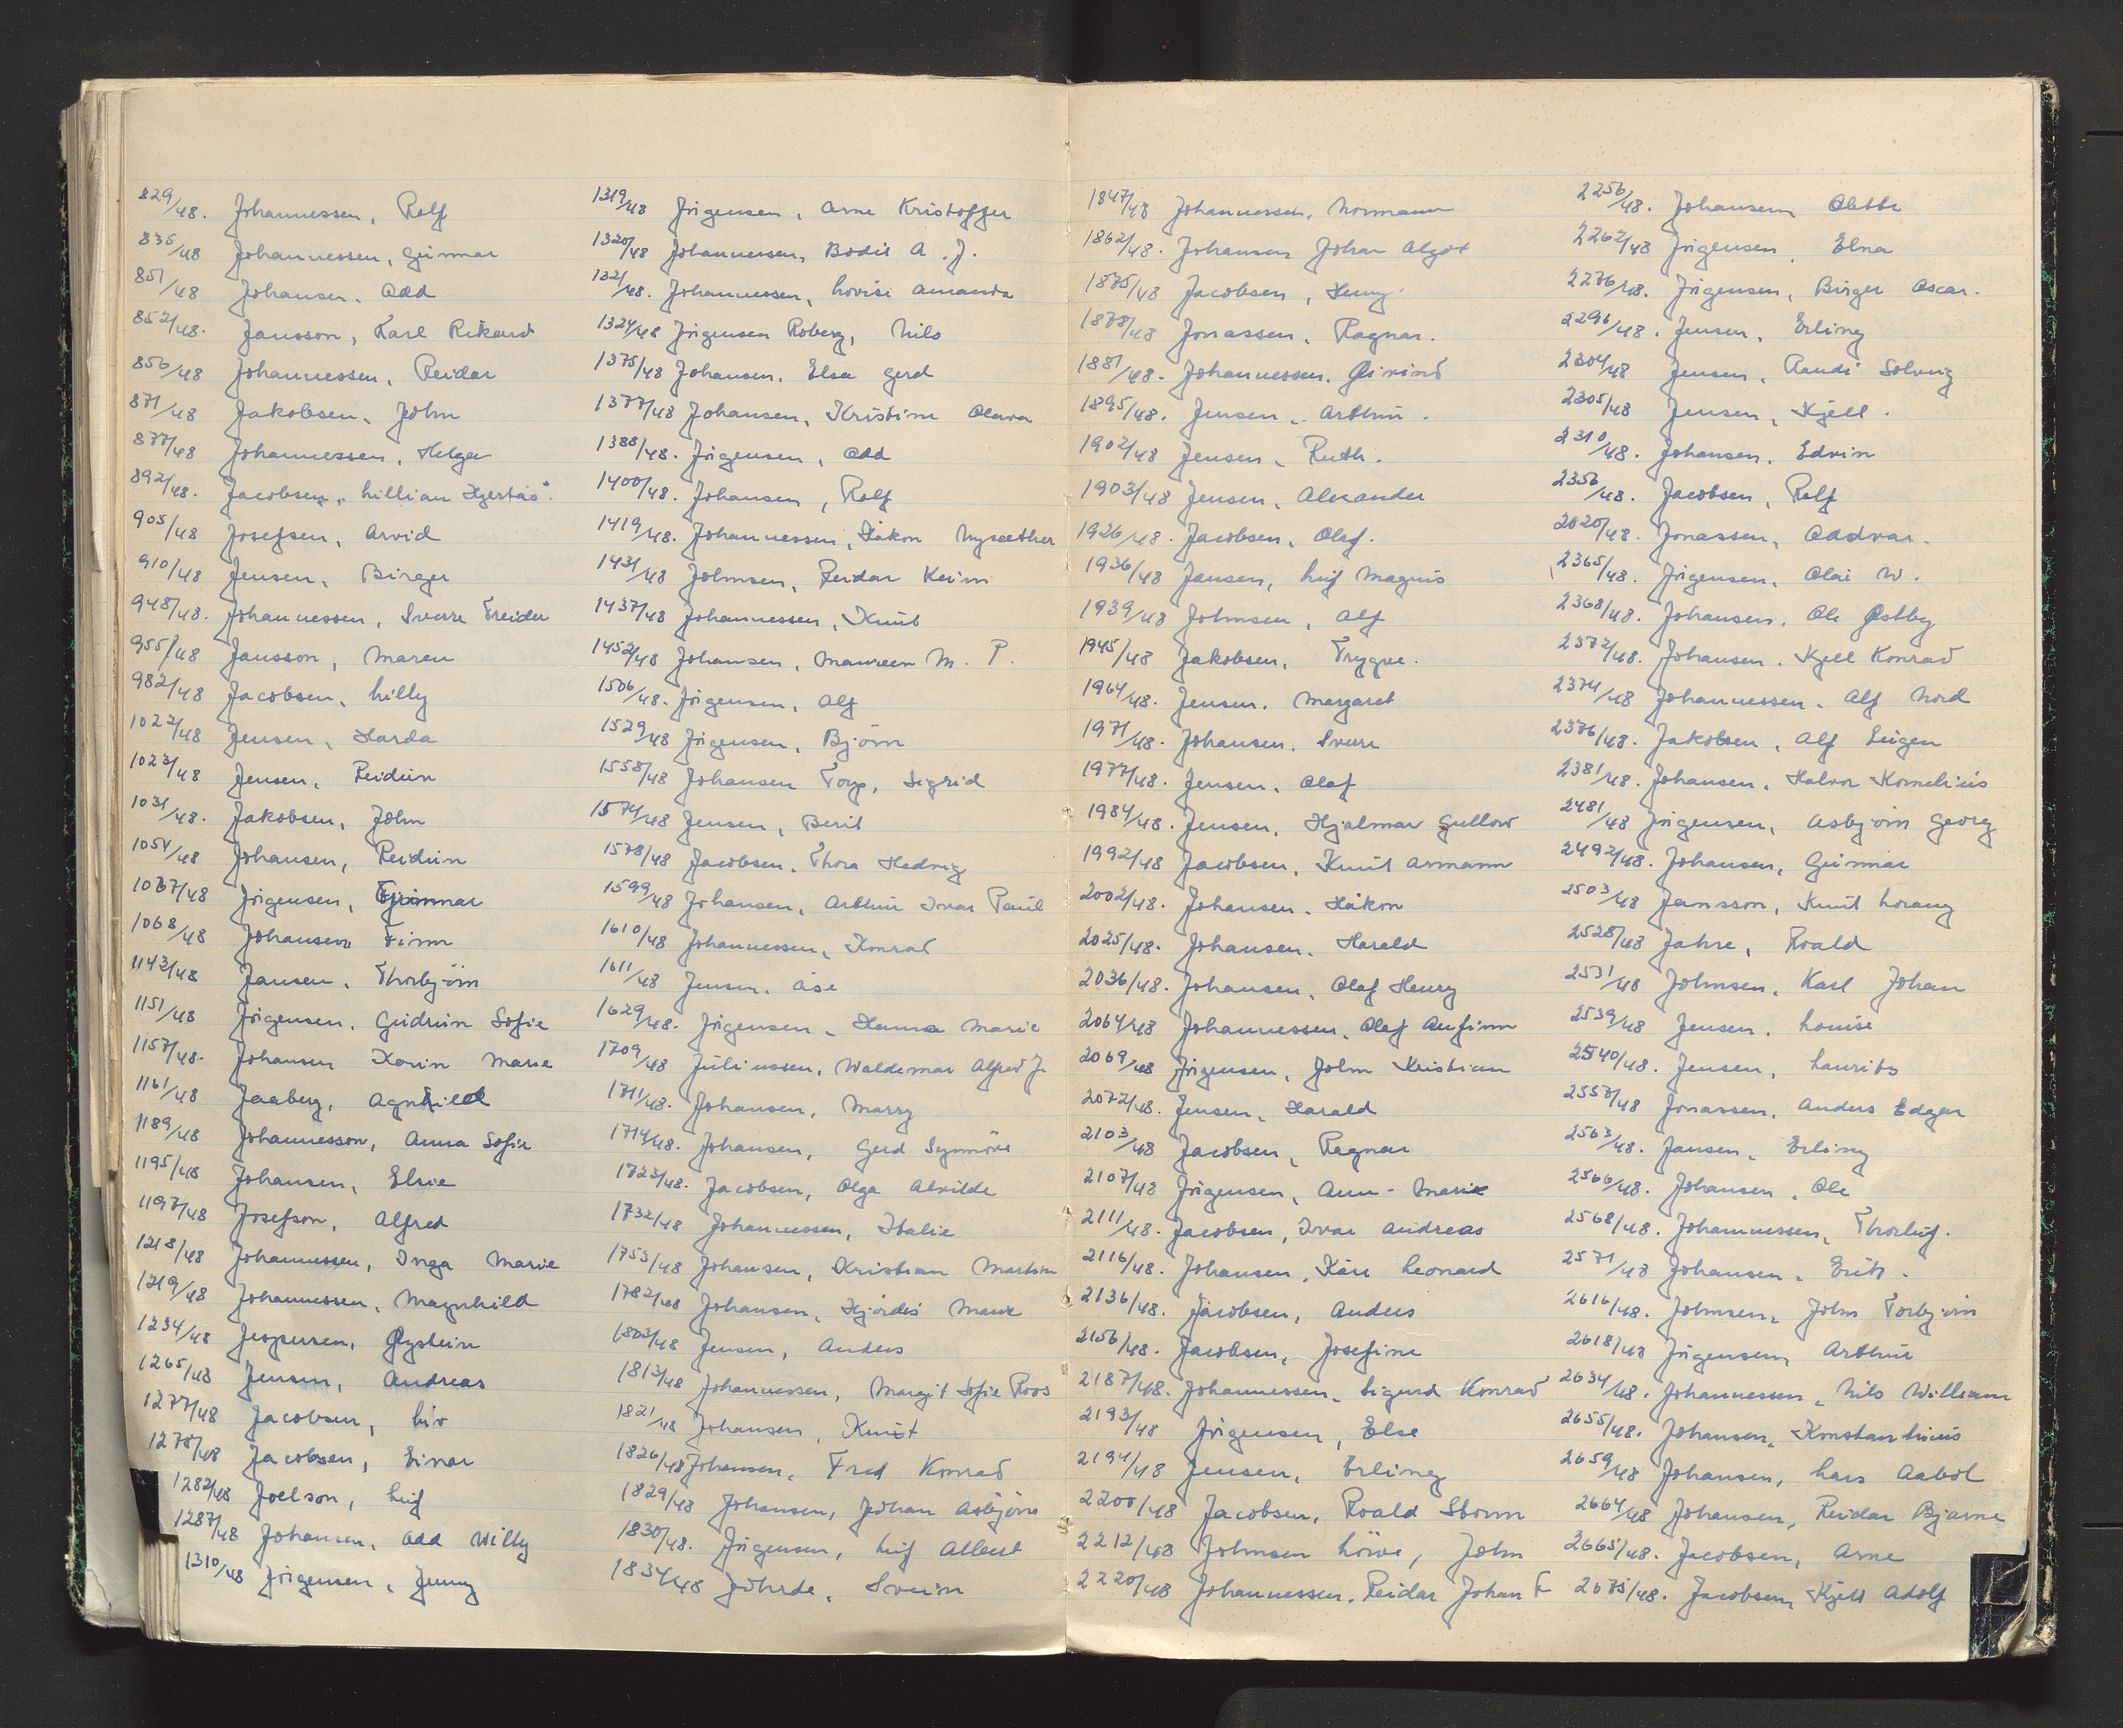 829/48. Johannessen, Rolf
835/48 Johannessen, Gunnar
851/48 Johansen, Odd
852/48. Jansson, Karl Rikard
856/48 Johannessen, Reidar
871/48 Jakobsen, John
877/48 Johannessen, Helga
892/48. Jacobsen, Lillian Hjertås.
905/48 Josefsen, Arvid
910/48 Jensen, Birger
948/48. Johannessen, Sverre Freider
955/48 Jansson, Maren
982/48 Jacobsen, Lilly
1022/48 Jensen, Harda
1023/48 Jensen, Reidun
1031/48. Jakobsen, John
1054/48 Johansen, Reidun
1067/48 Jörgensen, Gunnar
1068/48 Johansen Finn
1143/48 Jansen, Thorbjörn
1151/48 Jörgensen, Gudrun Sofie
1157/48. Johansen Karin Marie
1161/48 Jaaberg, Agnhild
1189/48 Johannesson, Anna Sofie
1195/48 Johansen, Elsie
1197/48 Josefson, Alfred
1218/48 Johannessen, Inga Marie
1219/48 Johannessen, Magnhild
1234/48 Jespersen, Øystein
1265/48 Jensen, Andreas
1277/48 Jacobsen, Liv
1278/48 Jacobsen, Einar
1282/48 Joelson, Leif
1287/48 Johansen, Odd Willy
1310/48 Jörgensen, Jenny
1319/48 Jörgensen, Arne Kristoffer
1320/48 Johannessen, Bodil A. J.
1321/48. Johannessen, Lovise Amanda
1324/48 Jörgensen Roberg, Nils
1375/48 Johansen, Elsa Gerd
1377/48 Johansen, Kristine Olava
1388/48. Jörgensen, Odd
1400/48. Johansen, Rolf
1419/48. Johannessen, Håkon Nysæther
1431/48 Johnsen, Reidar Keim
1437/48 Johannessen, Knut
1452/48 Johansen, Maureen M. P.
1506/48. Jörgensen, Alf
1529/48 Jörgensen, Björn
1558/48 Johansen Torp, Sigrid
1574/48 Jensen, Berit
1578/48 Jacobsen, Thora Hedvig
1599/48 Johansen, Arthur Ivar Paul
1610/48 Johannessen, Konrad
1611/48 Jensen, Åse
1629/48. Jörgensen, Hanna Marie
1709/48 Juliussen, Waldemar Alfred J.
1711/48. Johansen, Marry
1714/48. Johansen, Gerd Synnöve
1723/48. Jacobsen, Olga Alvilde
1732/48 Johannessen, Italie
1753/48 Johansen, Kristian Martin
1782/48 Johansen, Hjördis Marie
1803/48 Jensen, Anders
1813/48 Johannessen, Margit Sofie Roos
1821/48 Johansen, Knut
1826/48 Johansen, Fred Konrad
1829/48 Johansen, Johan Asbjörn
1830/48. Jörgensen, Leif Albert
1834/48 Juhrde, Svein
1847/48 Johannessen, Normann
1862/48. Johansen Johan Algot
1875/48 Jacobsen, Henry.
1878/48 Jonassen, Ragnar.
1881/48. Johannessen, Øivind
1895/48. Jensen, Arthur.
1902/48 Jensen, Ruth.
1903/48 Jensen, Alexander
1926/48. Jacobsen, Olaf.
1936/48 Jansen, Leif Magnus
1939/48 Johnsen, Alf
1945/48 Jakobsen, Trygve.
1964/48. Jensen, Margaret
1971/48. Johansen, Sverre
1977/48. Jensen, Olaf
1984/48. Jensen, Hjalmar Gullow
1992/48 Jacobsen, Knut Armann
2002/48. Johansen, Håkon
2025/48. Johansen, Harald
2036/48. Johansen, Olaf Henry
2064/48 Johannessen, Olaf Anfinn
2069/48 Jörgensen, John Kristian
2072/48. Jensen, Harald
2103/48 Jacobsen, Ragnar
2107/48 Jörgensen, Ann-Marie
2111/48. Jacobsen, Ivar Andreas
2116/48. Johansen, Kåre Leonard
2136/48. Jacobsen, Anders
2156/48. Jacobsen, Josefine
2187/48. Johannessen, Sigurd Konrad
2193/48 Jörgensen, Else
2194/48 Jensen, Erling
2200/48 Jacobsen, Roald Storm
2212/48 Johnsen Löive, John
2220/48 Johannessen, Reidar Johan F
2256/48. Johansen, Olette
2262/48 Jörgensen, Elna
2276/48. Jörgensen, Birger Oscar.
2296/48. Jensen, Erling
2304/48 Jensen, Randi Solveig
2305/48 Jensen, Kjell.
2310/48. Johansen, Edvin
2356/48. Jacobsen, Rolf
2020/48. Jonassen, Oddvar.
2365/48. Jörgensen, Olai W.
2368/48. Johansen, Ole Østby
2372/48. Johansen, Kjell Konrad
2374/48 Johannessen, Alf Nord
2376/48. Jakobsen, Alf Eugen
2381/48. Johansen, Halvor Kornelius
2481/48 Jörgensen, Asbjörn Georg
2492/48. Johansen, Gunnar
2503/48 Jansson, Knut Lorang
2528/48 Jahre, Roald
2531/48 Johnsen, Karl Johan
2539/48 Jensen, Louise
2540/48. Jensen, Laurits
2557/48 Jonassen, Anders Edgar
2563/48. Jansen, Erling
2566/48. Johansen, Ole
2568/48. Johannessen, Thorleif.
2571/48 Johansen, Erik.
2616/48. Johnsen, John Torbjörn
2618/48 Jörgensen, Arthur
2634/48. Johannessen, Nils William
2655/48. Johansen, Konstantinus
2659/48 Johansen, Lars Aabol
2664/48 Johansen, Reidar Bjarne
2665/48. Jacobsen, Arne
2675/48. Jacobsen, Kjell Adolf